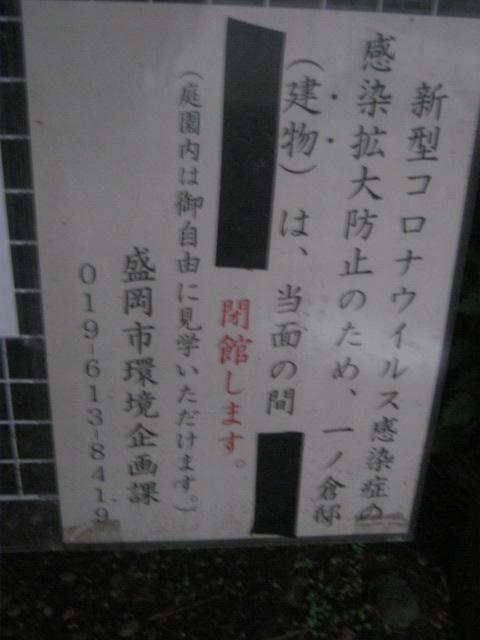 新型コロナウイルス感染症の
感染拡大防止のため、一ノ倉邸
(建物)は、当面の間
閉館します。
(庭園内は御自由に見学いただけます。)
盛岡市環境企画課
019-613-8419